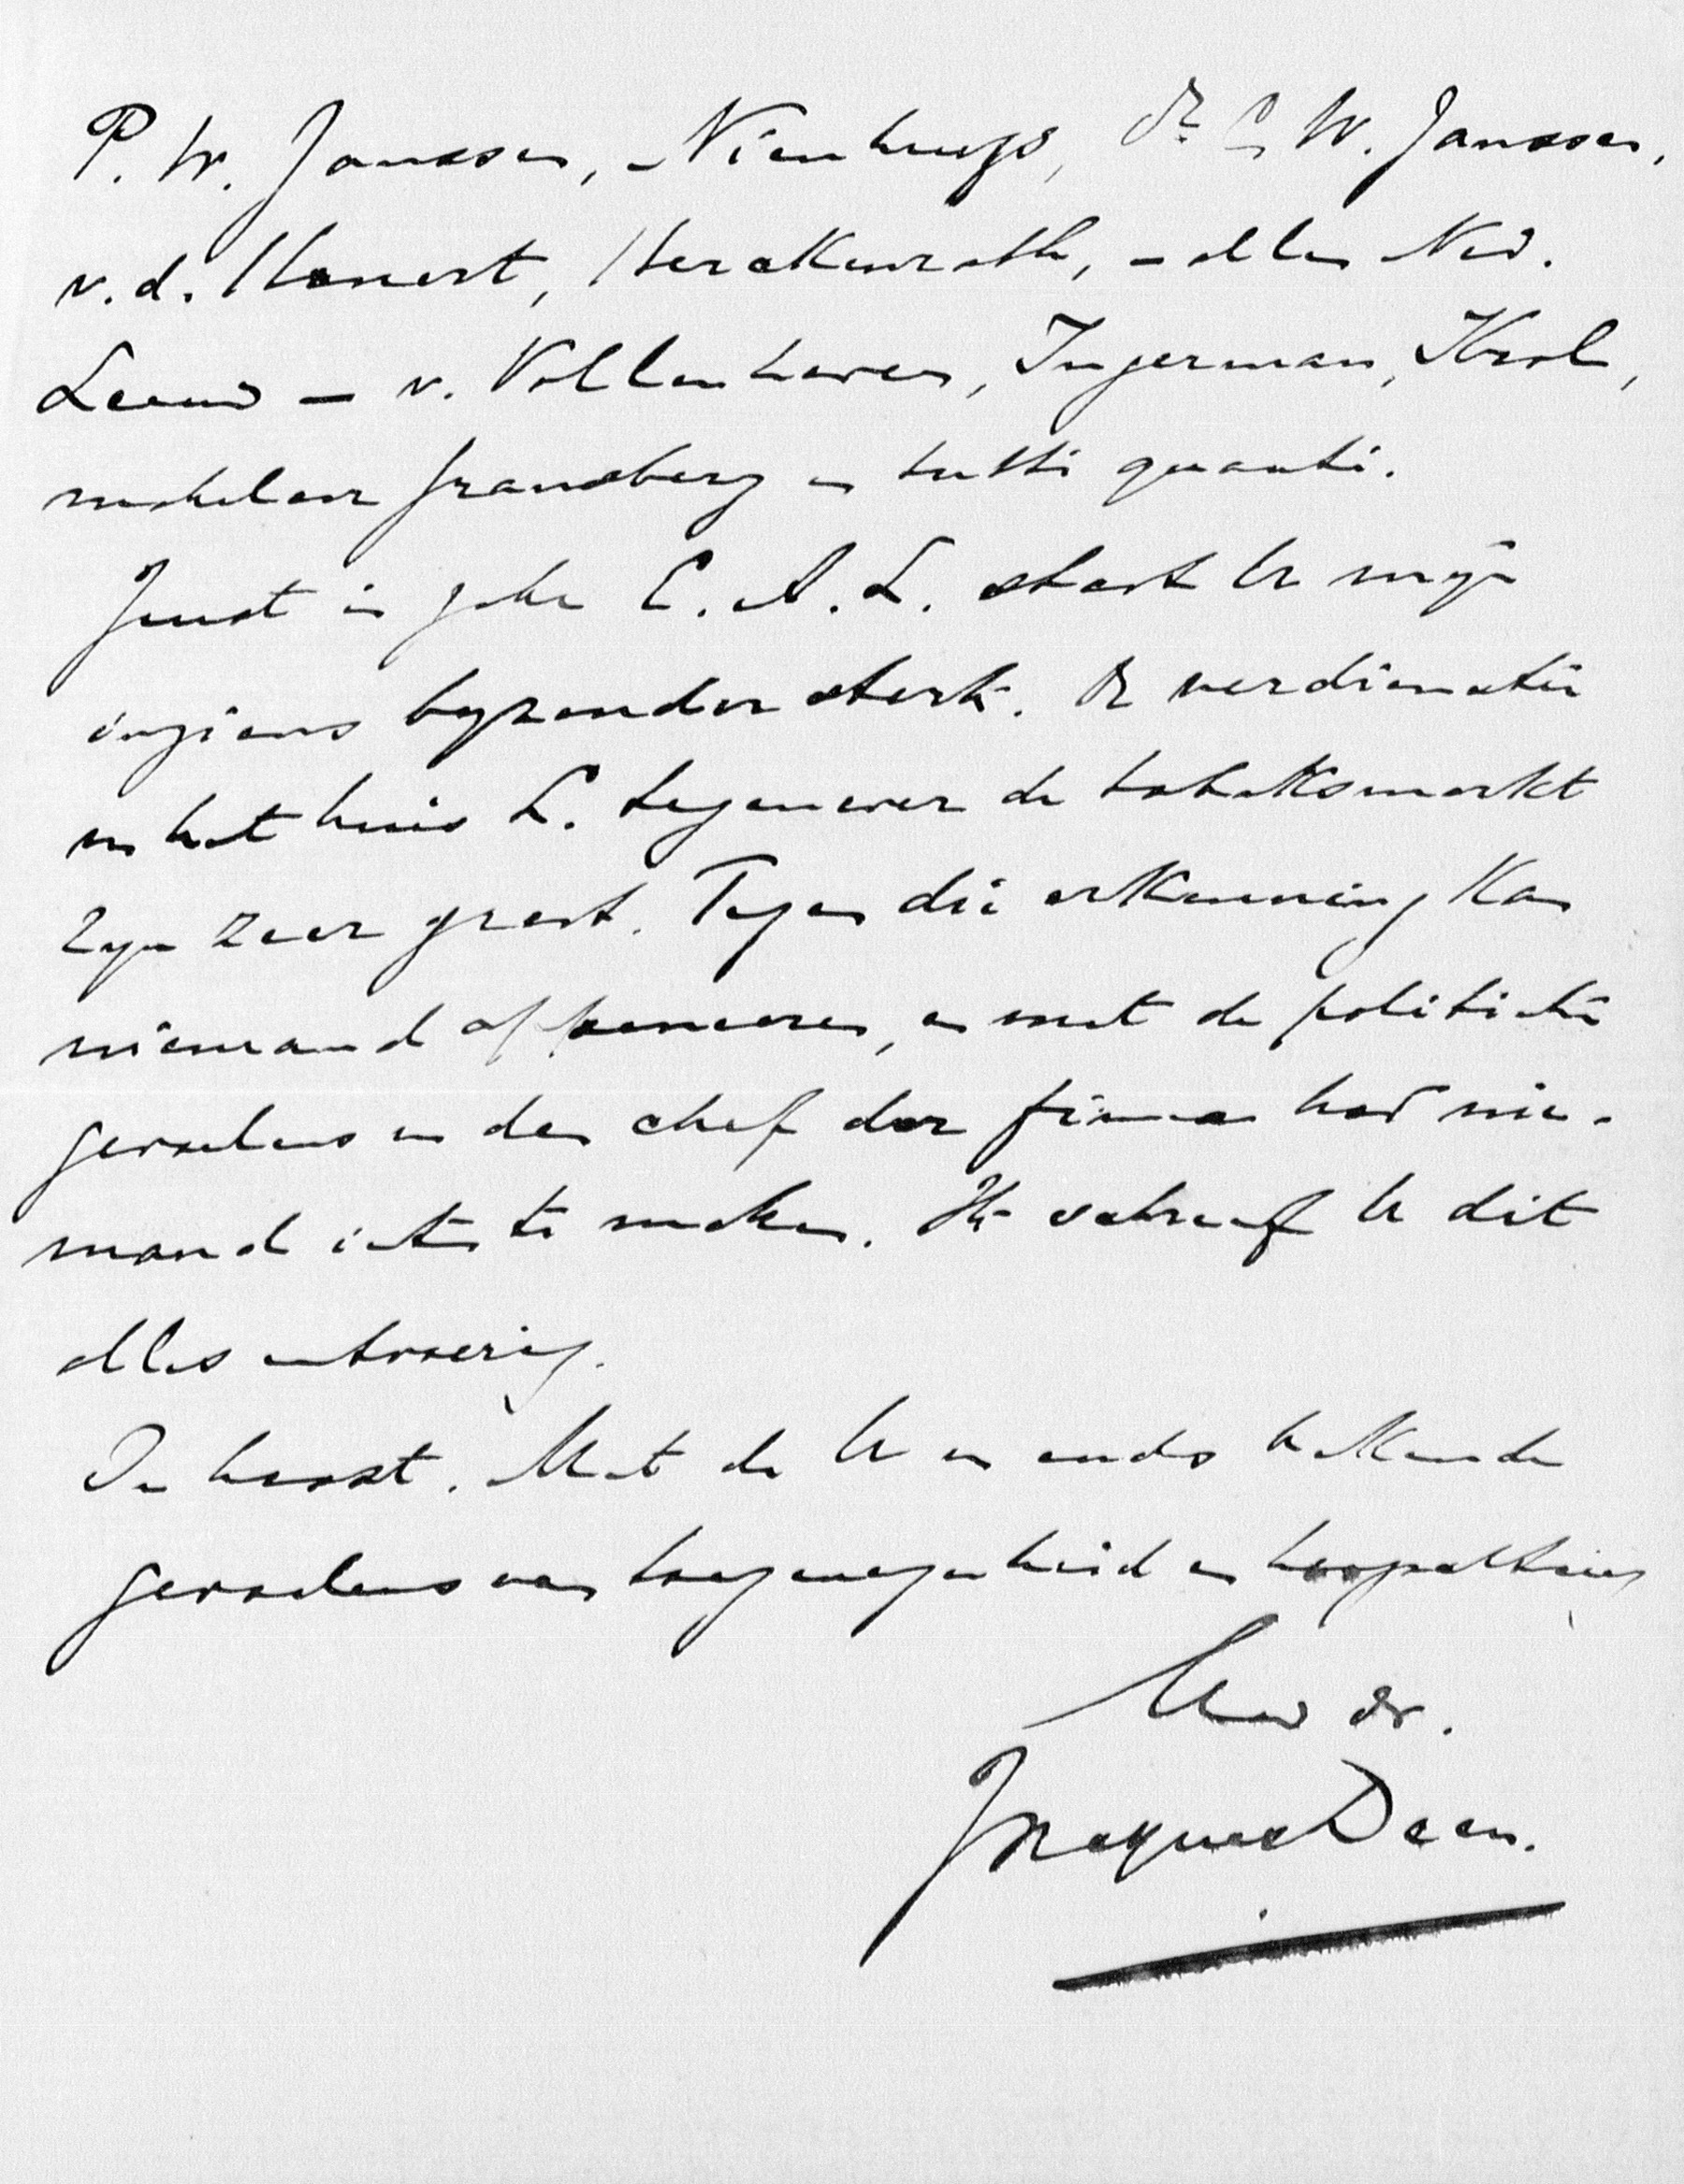 P. W. Janssen, Nienhuys, Dr. C. W. Janssen,
v.d. Honert, Herckenrath, – allen Ned.
Leeuw – v. Vollenhoven, Ingerman, Krol,
makelaar Fransberg en tutti quanti.
Juist in zake C. A. L. staat U mijn
inziens byzonder sterk. De verdiensten
v. het huis L. tegenover de tabaksmarkt
zyn zeer groot. Tegen die erkenning kan
niemand opponeeren, en met de politieke
gevoelens v. den chef der firma had nie-
mand iets te maken. Ik schreef U dit
alles
In haast. Met de U en ouds bekende
gevoelens van toegenegenheid en hoogachting
Uw dr.
Jacques Deen.